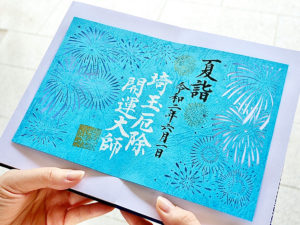 夏詣
令和二年六月一日
埼玉厄除
開運大師